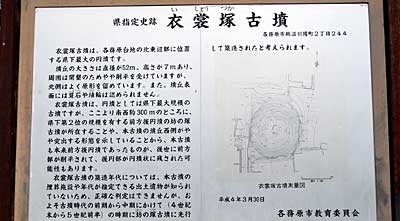 県指定史跡 衣裳塚古墳
い しょう づか こ ふん
各務原市鵜沼羽場町2丁目244
衣裳塚古墳は、各務原台地の北東辺部に位置
する県下最大の円墳です。
墳丘の大きさは直径が52m、高さが7mあり、
周囲は開墾のためやや削平を受けていますが、
北側はよく原形を留めています。また、墳丘表
面には葺石や埴輪は認められません。
衣裳塚古墳は、円墳としては県下最大規模の
古墳ですが、ここより南西約300mのところに、
県下第2位の規模を有する前方後円墳の坊の塚
古墳が所在することや、本古墳の墳丘西側がや
や突出する形態を示していることから、本古墳
も本来前方後円墳であったものが、後世に前方
部が削平されて、後円部が円墳状に残された可
能性もあります。
衣裳塚古墳の築造年代については、本古墳の
埋葬施設や年代が推定できる出土遺物が知られ
ていないため、正確な判定はできませんが、お
よそ古墳時代の前期から中期にかけて(4世紀
末から5世紀前半)の時期に坊の塚古墳に先行
して築造されたと考えられます。
衣裳塚古墳測量図
平成4年3月30日
各務原市教育委員会